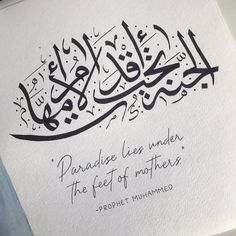 الجنة تحت أقدام الأمهات
"Paradise lies under
the feet of mothers."
-PROPHET MUHAMMED